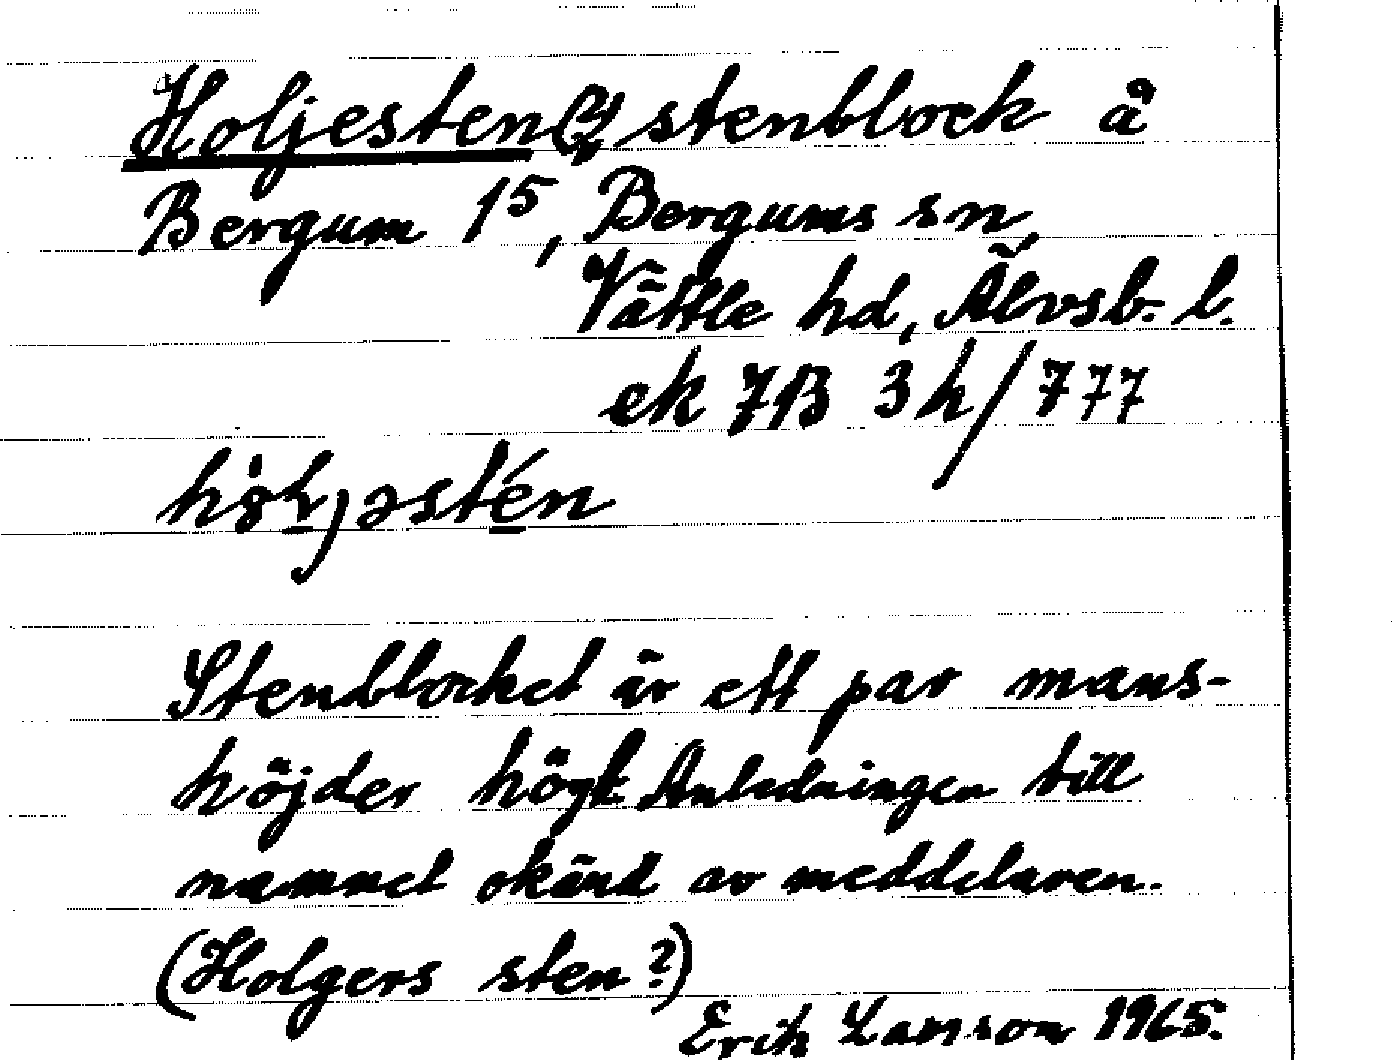 Holjesten(?) stenblock å
Bergum 1⁵, Bergums sn,
Vättle hd, Älvsb. l.
ek 7B 3h/777
Stenblocket är ett par mans-
höjder högt Anledningen till
namnet okänd av meddelaren.
(Holgers sten?)
Erik Larsson 1965.